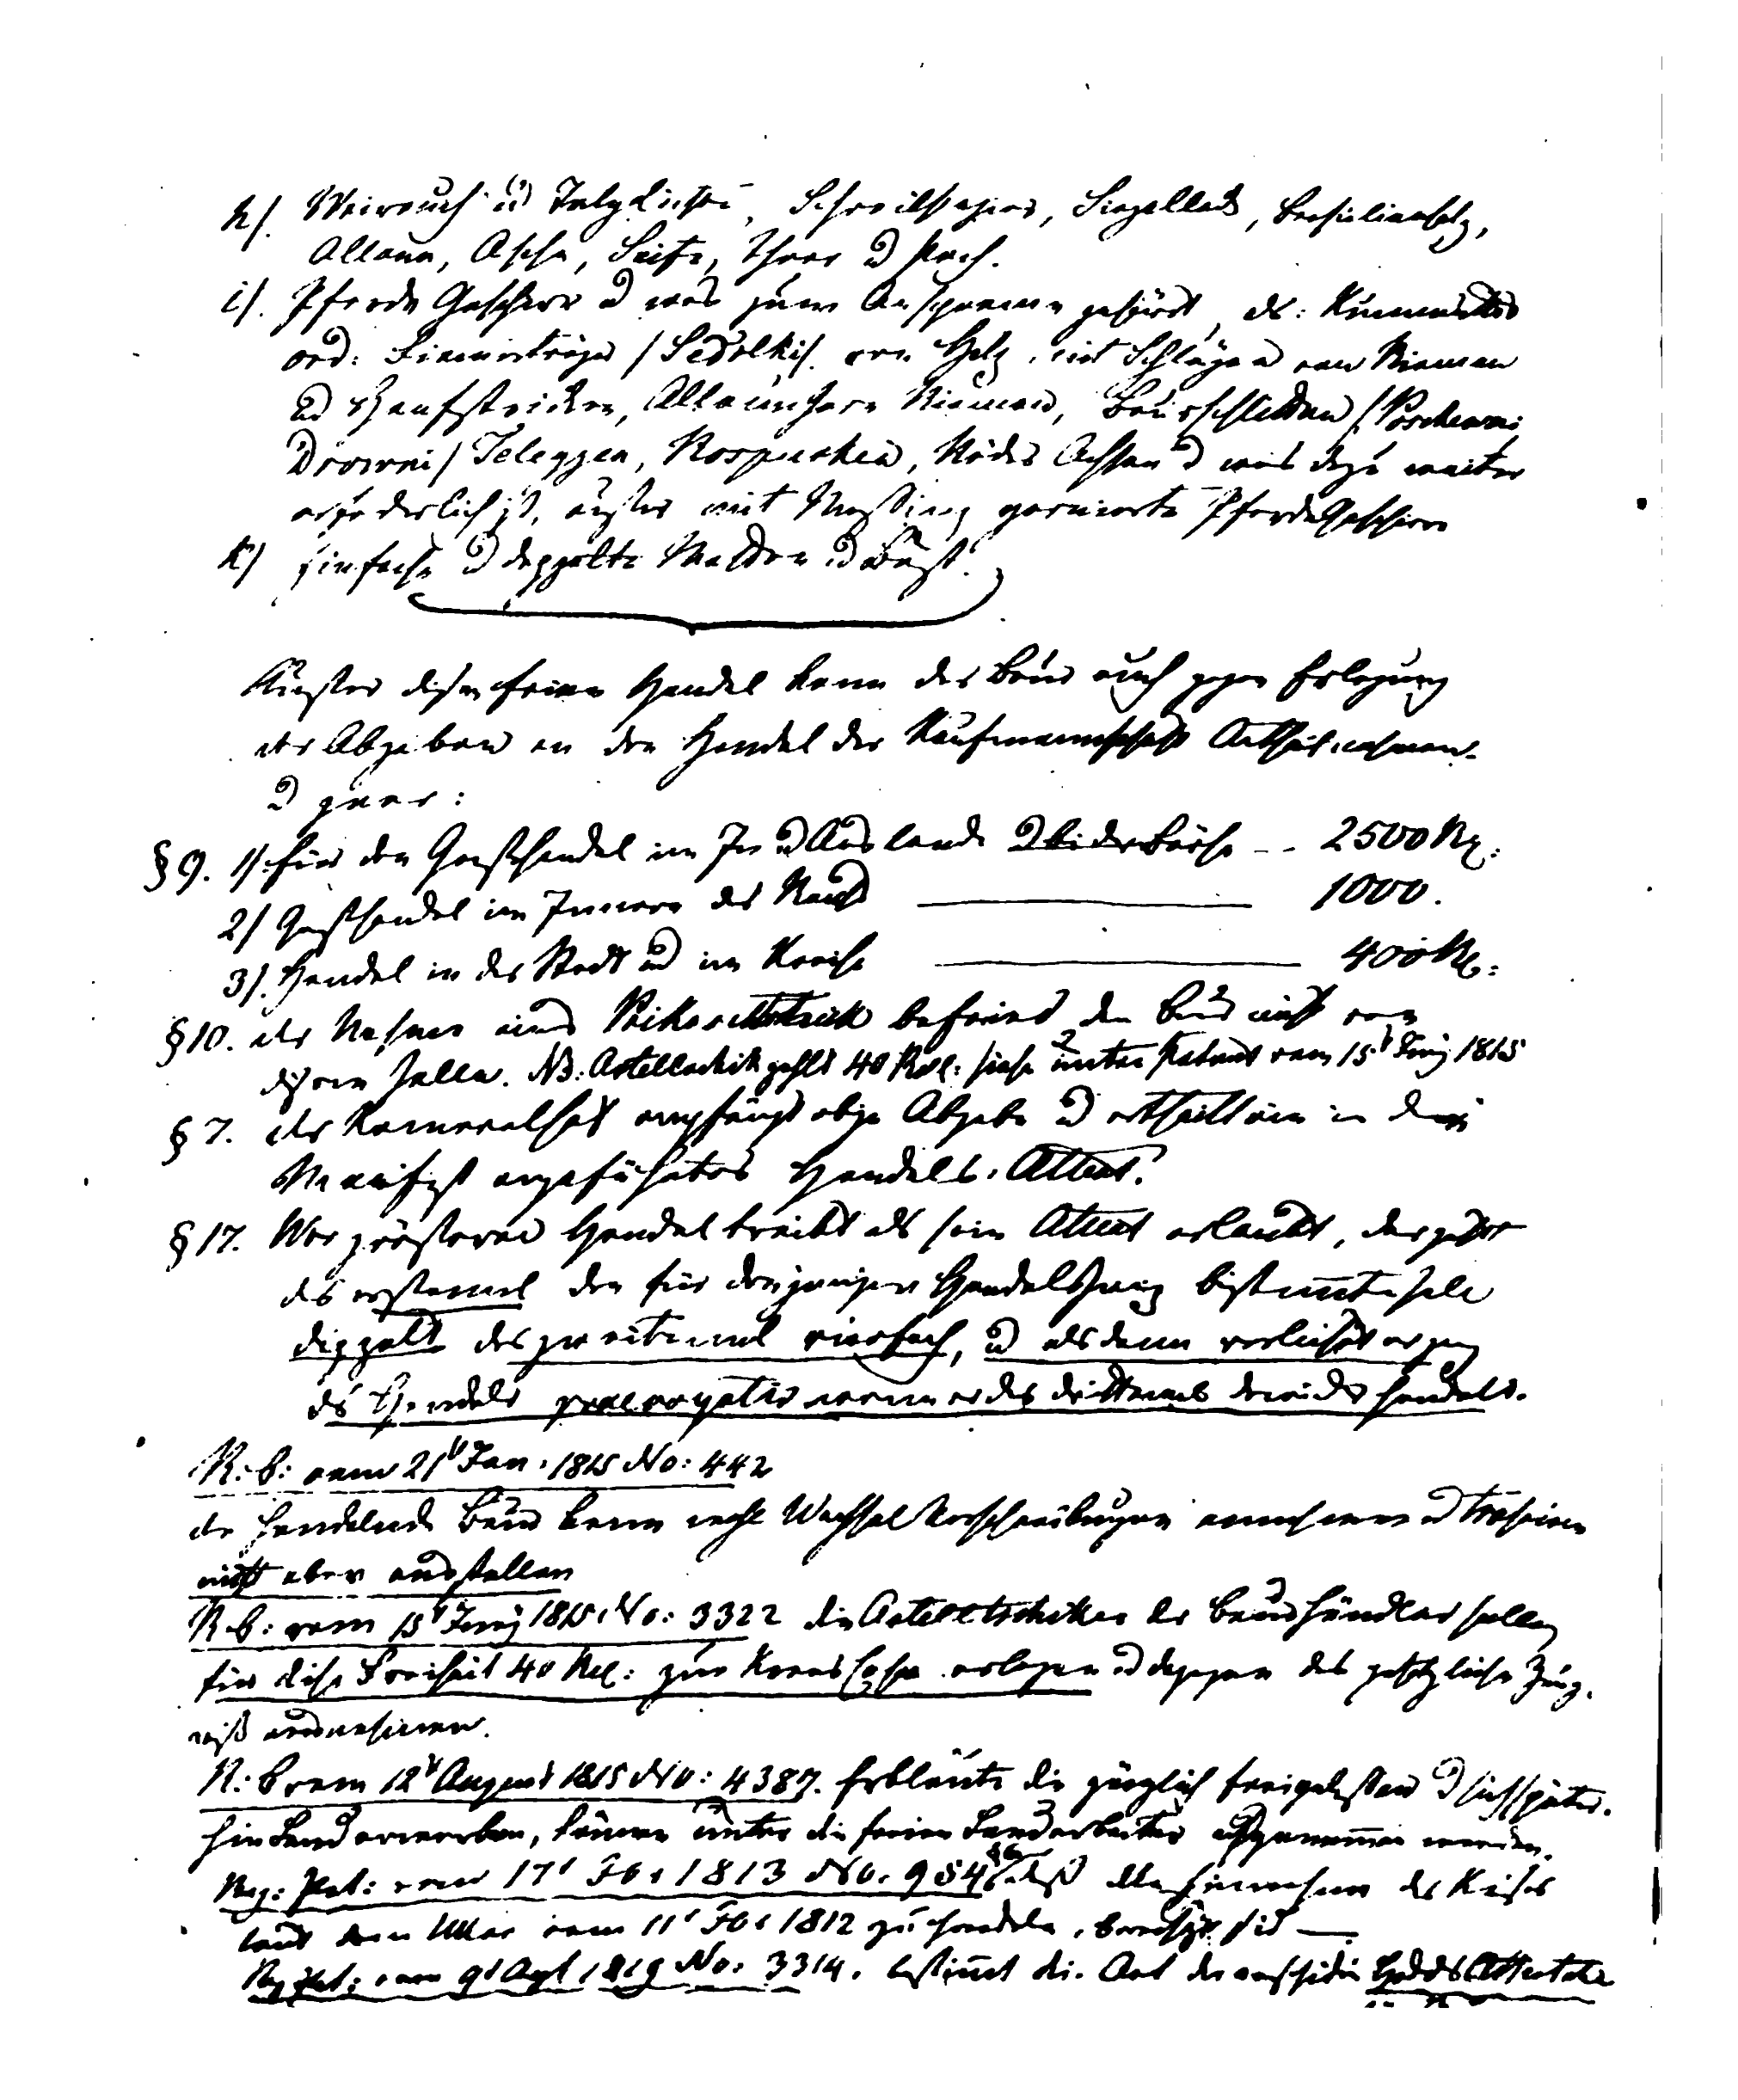 h/. Weirauch u Talglichte, Schreibpapier, Siegellack, Bresilienholz,
Allaun, Asche, Seife, Theer u Pech.
i/. Pferde Geschirr u was zum Anspannen gehört, als: Kummette
ord: /Sedolki/. von Holz, mit Schlägen von Riemen
u Hanfstricken, Allaungare Riemen, Bauerschlitten /Poschewni
Drowni/ Teleggen, Rospusken, Räder Achsen u was dazu weiter
erforderlich ist, außer mit Messing garnierte Pferde Geschirre
k/ Einfache u doppelte Matten u Bast.
Außer diesem freien Handel kann der Bauer auch gegen Erlegung
der Abgaben an den Handel der Kaufmannschaft Antheil nehmen.
u zwar:
§ 9. 1/. für den Großhandel im In u Auslande u bei der Börse -- 2500 Rz:
2/ Großhandel im Innern des Reichs 1000.
3/. Handel in der Stadt u im Kreise 400 Rz:
§ 10. der Nehmer eines befreiet den Bauer nicht von
diesem Zolle. NB: Artellschik zahlt 40 Rbl: siehe unter Patent vom 15t Juny 1815
§ 7. der Kameralhof empfängt obige Abgabe u ertheilt ein in dem
Manifest angeführtes Handels-Attest.
§ 17. Wer größeren Handel treibt als sein Attest erlaubt, der zahlt
das erstemal den für denjenigen Handelszweig bestimmten Zoll
doppelt das zweitemal vierfach, u alsdann verliehrt er ganz
das Handels praerogativ wenn er das drittemal dawider handelt.
R: B: vom 21t Jan. 1815 No: 442
der handelnde Bauer kann wohl Wechsel Verschreibungen annehmen u trassiren
nicht aber ausstellen
R. B: vom 15t Juny 1815. No: 3322 die Artelltschiker der Bauerhändler sollen
für diese Freiheit 40 Rbl: zur Kreis Casse erlegen u dagegen das gesetzliche Zeug-
niß ausnehmen.
R: B vom 12t August 1815 No: 4387. Erbleute die gänzlich freigelassen u sich späterhin
Land erwerben, können unter die freien Landarbeiter aufgenommen werden.
Reg: Pat: vom 17t Feb. 1813 No. 954 daß alle Einwohner des Reiches
laut dem Ukas vom 11t Feb 1812 zu handeln, berechtigt sind —
Reg Pat: vom 9t Apl 1819 No: 3314. bestimmt die Art der verschiednen Handels Attestate